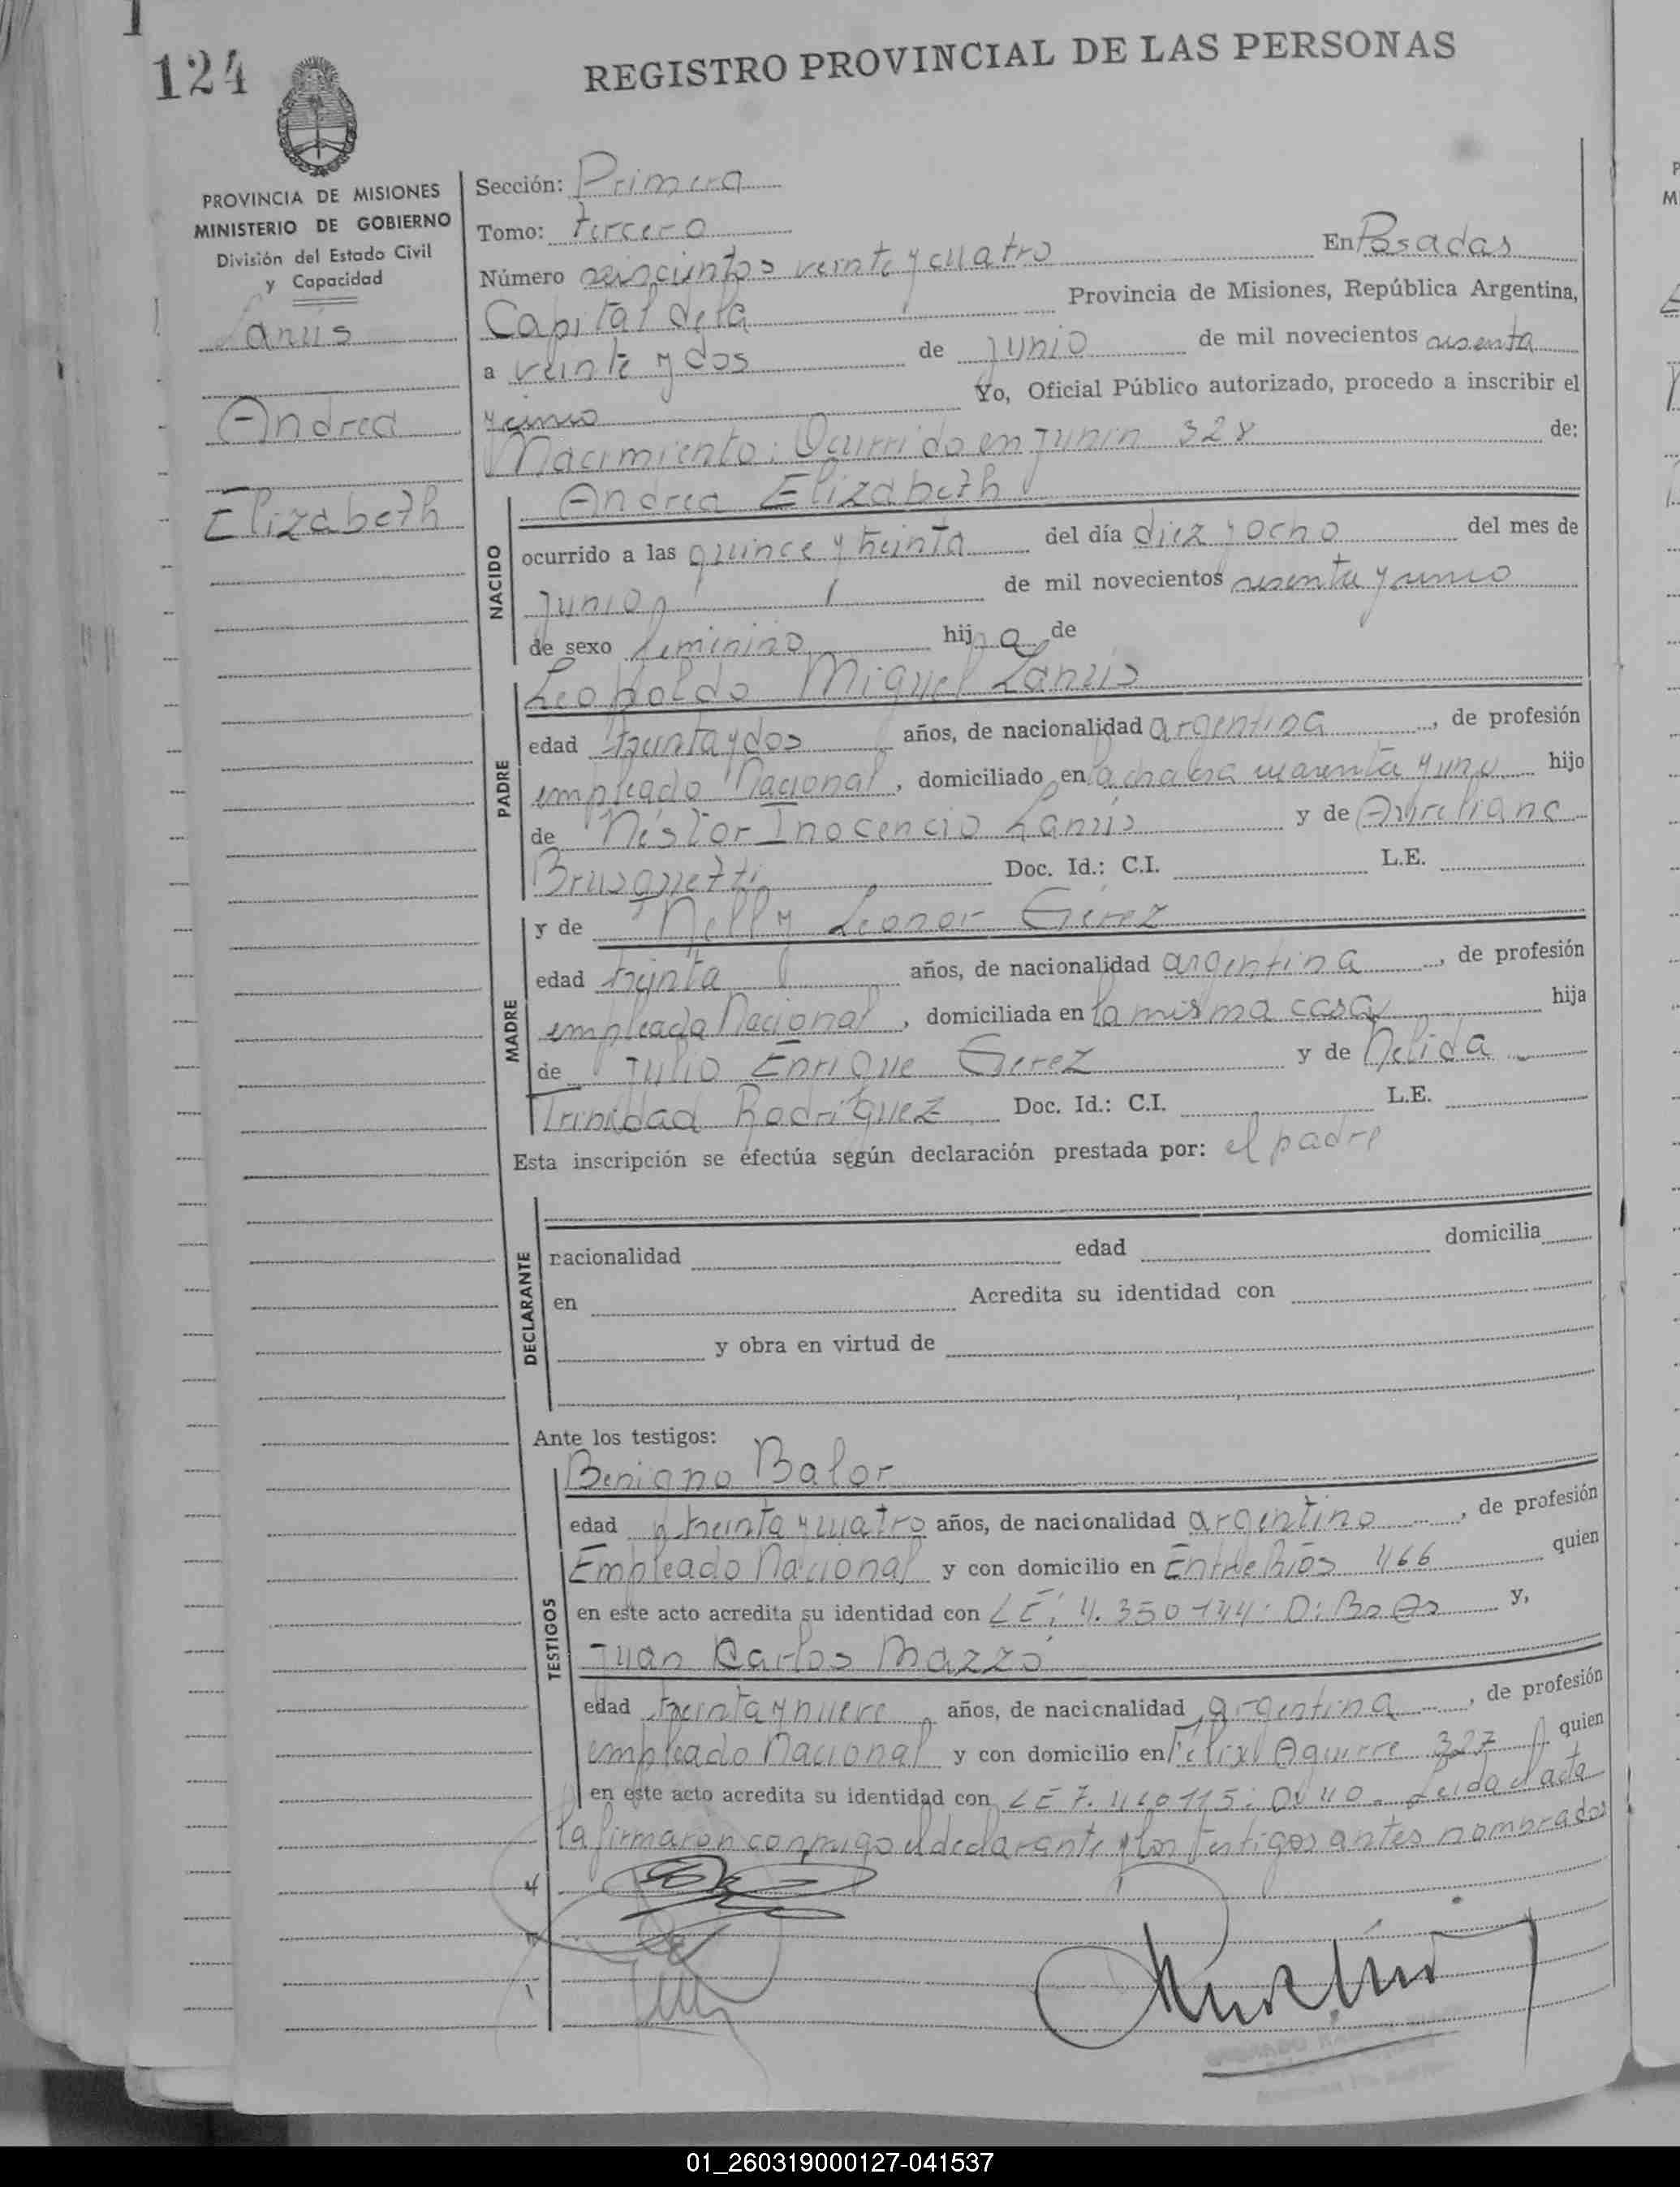 124
REGISTRO PROVINCIAL DE LAS PERSONAS
PROVINCIA DE MISIONES
MINISTERIO DE GOBIERNO
División del Estado Civil
y Capacidad
Lanús
Andrea
Elizabeth
Sección: Primera
Tomo: tercero
Número seiscientos veinte y cuatro En Posadas
Capital de la Provincia de Misiones, República Argentina,
a veinte y dos de junio de mil novecientos sesenta
y cinco Yo, Oficial Público autorizado, procedo a inscribir el
Nacimiento: Ocurrido en Junin 328 de:
NACIDO
Andrea Elizabeth
ocurrido a las quince y treinta del día diez y ocho del mes de
junio de mil novecientos sesenta y cinco
de sexo femenino hija de
PADRE
Leopoldo Miguel Lanús
edad treinta y dos años, de nacionalidad argentina, de profesión
empleado Nacional, domiciliado en la chacra cuarenta y uno hijo
de Néstor Inocencio Lanús y de Aureliana
Brusquetti Doc. Id.: C.I. L.E.
MADRE
y de Nelly Leonor Gerez
edad treinta años, de nacionalidad argentina, de profesión
empleada Nacional, domiciliada en la misma casa hija
de Julio Enrique Gerez y de Nelida
Trinidad Rodriguez Doc. Id.: C.I. L.E.
Esta inscripción se efectúa según declaración prestada por: el padre
DECLARANTE
nacionalidad edad domicilia
en Acredita su identidad con
y obra en virtud de
Ante los testigos:
TESTIGOS
Benigno Balor
edad treinta y cuatro años, de nacionalidad argentino, de profesión
Empleado Nacional y con domicilio en Entre Rios 466 quien
en este acto acredita su identidad con LE: 4.350 744: D: Bs As y,
Juan Carlos Mazzo
edad treinta y nueve años, de nacionalidad argentina, de profesión
empleado Nacional y con domicilio en Félix Aguirre 327 quien
en este acto acredita su identidad con LE 7. Leida el acta
la firmaron conmigo el declarante y los testigos antes nombrados
01_260319000127-041537